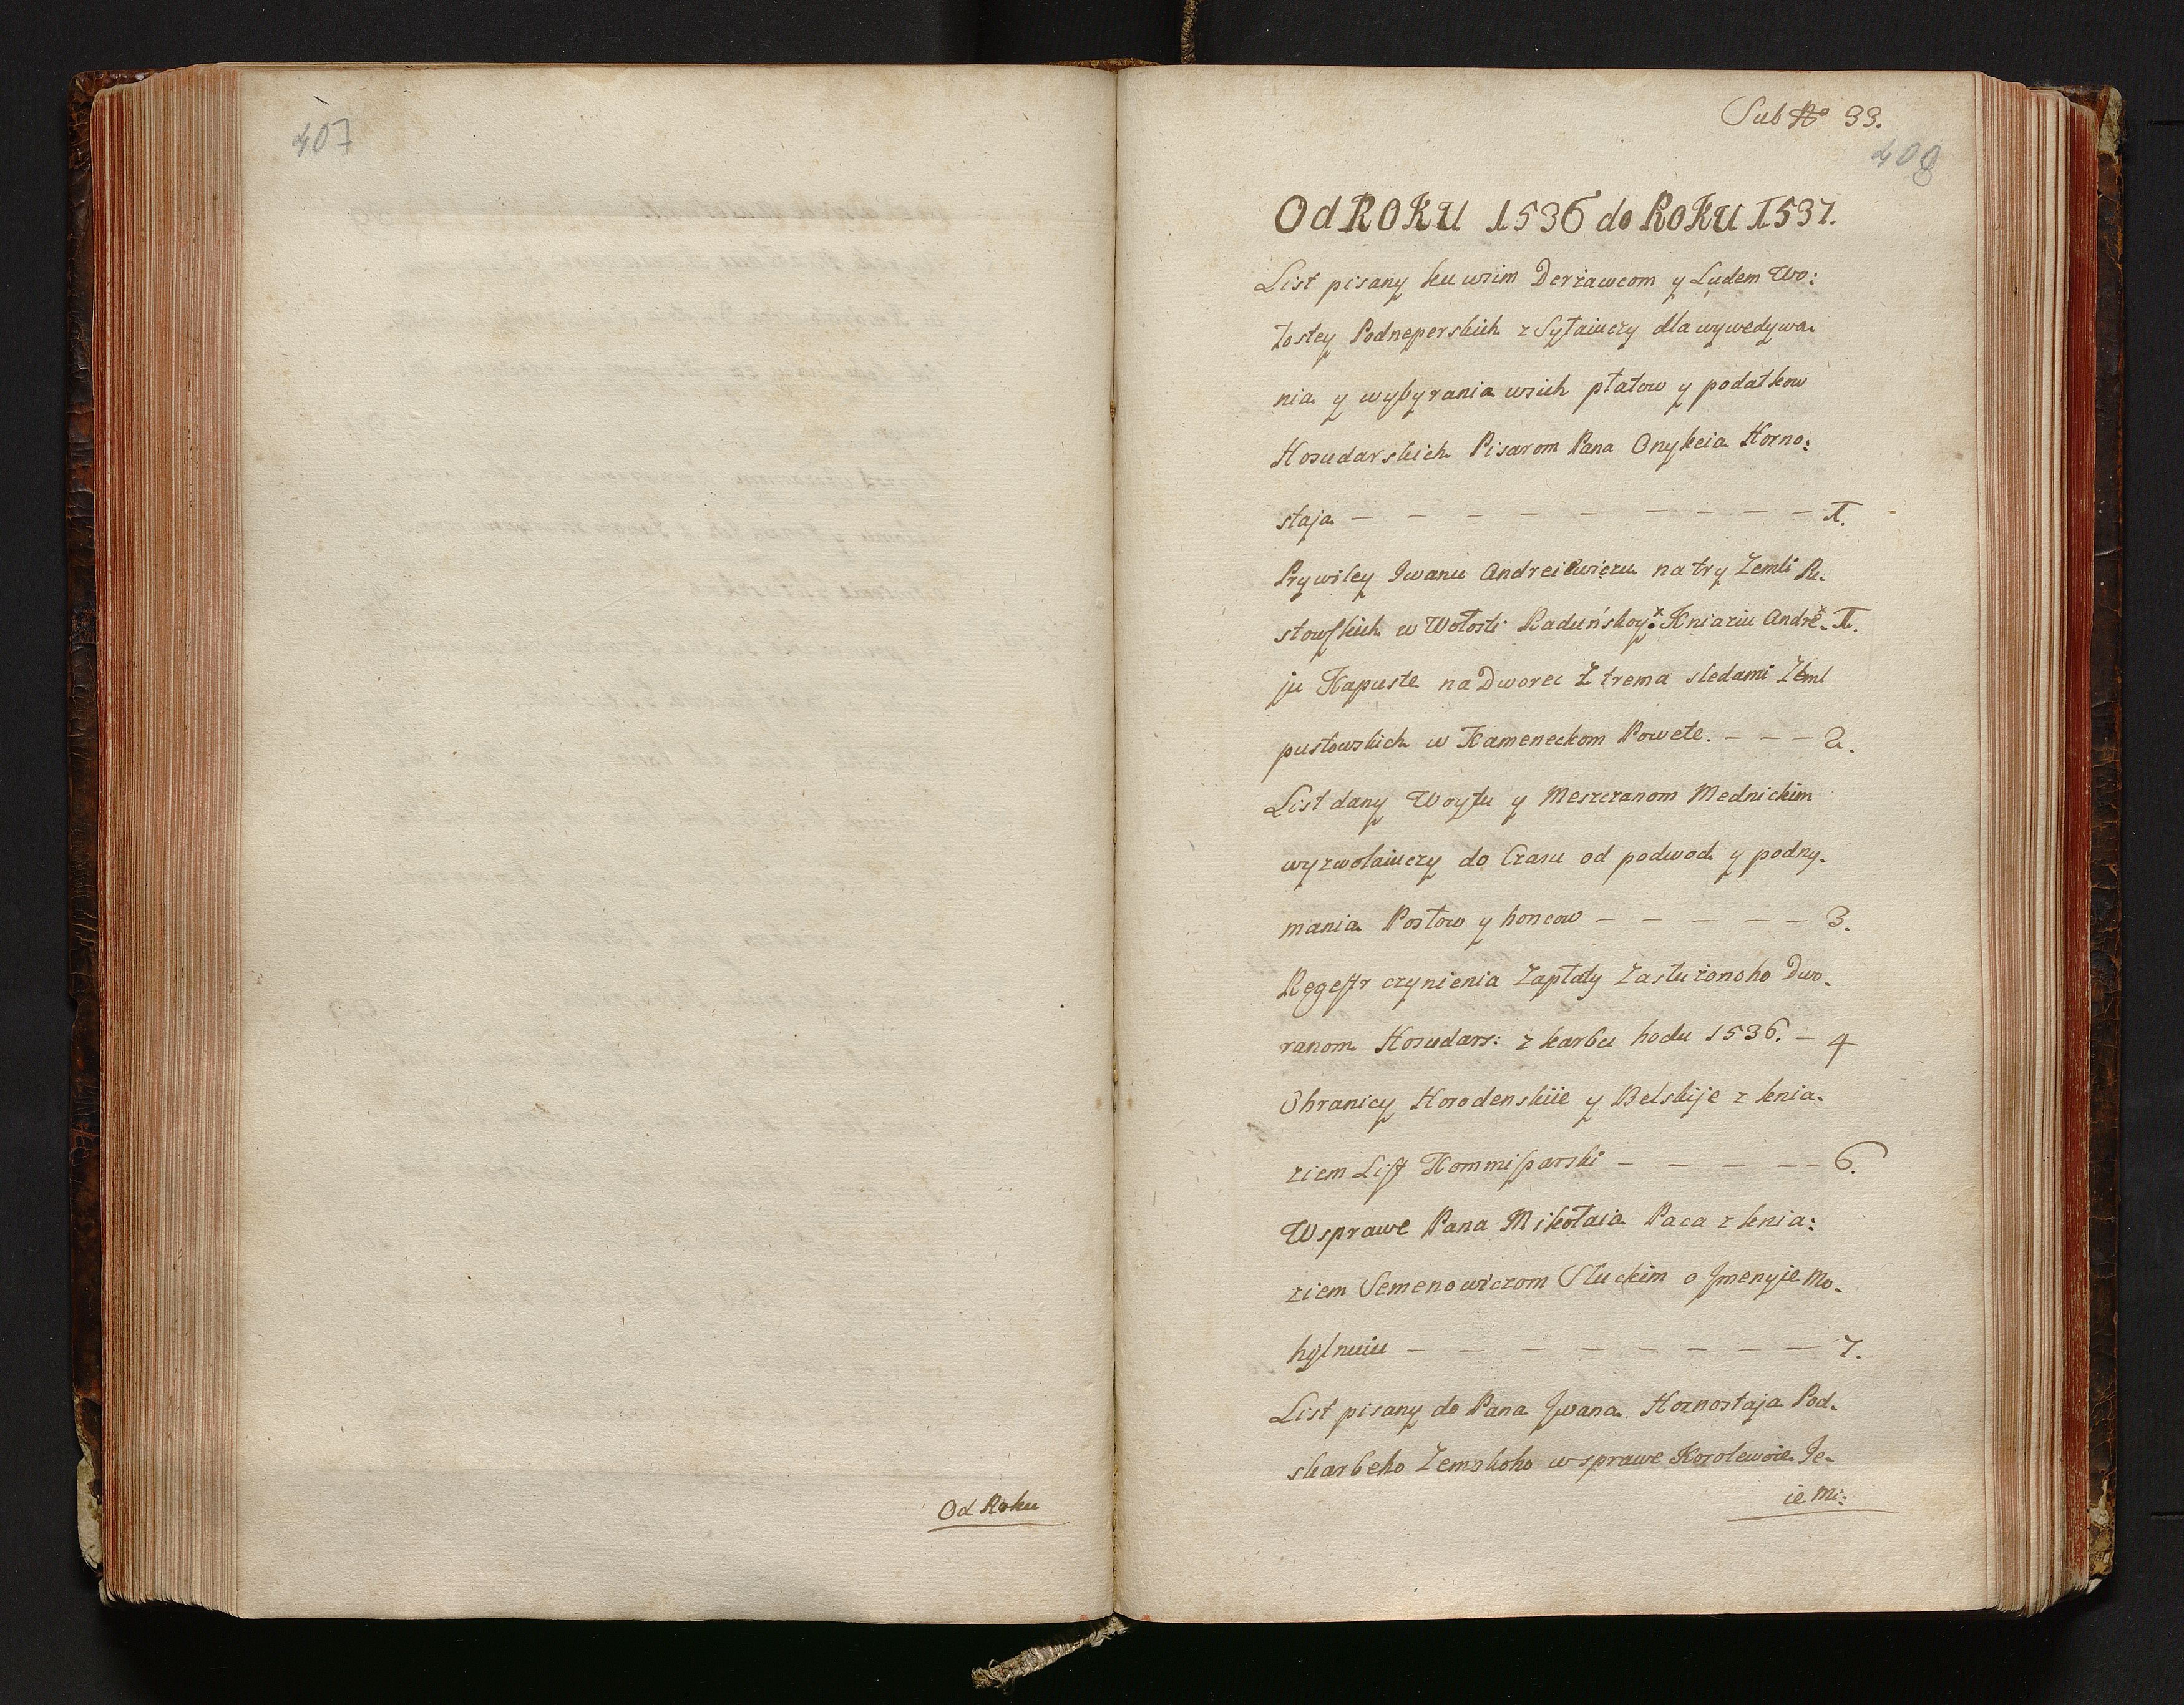 407
Od Roku
Sub No 33.
408
Od ROKU 1536 do ROKU 1537.
List pisany ku wsim Derżawcom y Ludem Wo:
łostey Podneperskich z Sytaiuczy dla wywedywa-
nia y wybyrania wsich płatow y podatkow
Hosudarskich Pisarom Pana Onykeia Horno:
staja — — — — — — — — — 1.
Prywiley Iwanu Andreiewiczu na try Zemli Pu-
stowskich w Wołosti Raduńskoy x Kniaziu Andre- x 1.
ju Kapuste na Dworec Z trema sledami Zeml
pustowskich w Kameneckom Powete. — — — 2.
List dany Woytu y Meszczanom Mednickim
wyzwolaiuczy do Czasu od podwod y podny-
mania Posłow y honcow — — — — — 3.
Regestr czynienia Zapłaty Zasłużonoho Dwo-
ranom Hosudars: z skarbu hodu 1536. — 4
Ohranicy Horodenskiie y Belskije z knia-
ziem List Kommissarski — — — — — 6.
W sprawe Pana Mikołaia Paca z knia:
ziem Semenowiczom Słuckim o Jmenyie Mo-
hylnuiu — — — — — — — — 7.
List pisany do Pana Jwana Hornostaja Pod-
skarbeho Zemskoho w sprawe Korolewoie Je-
ie Mi: